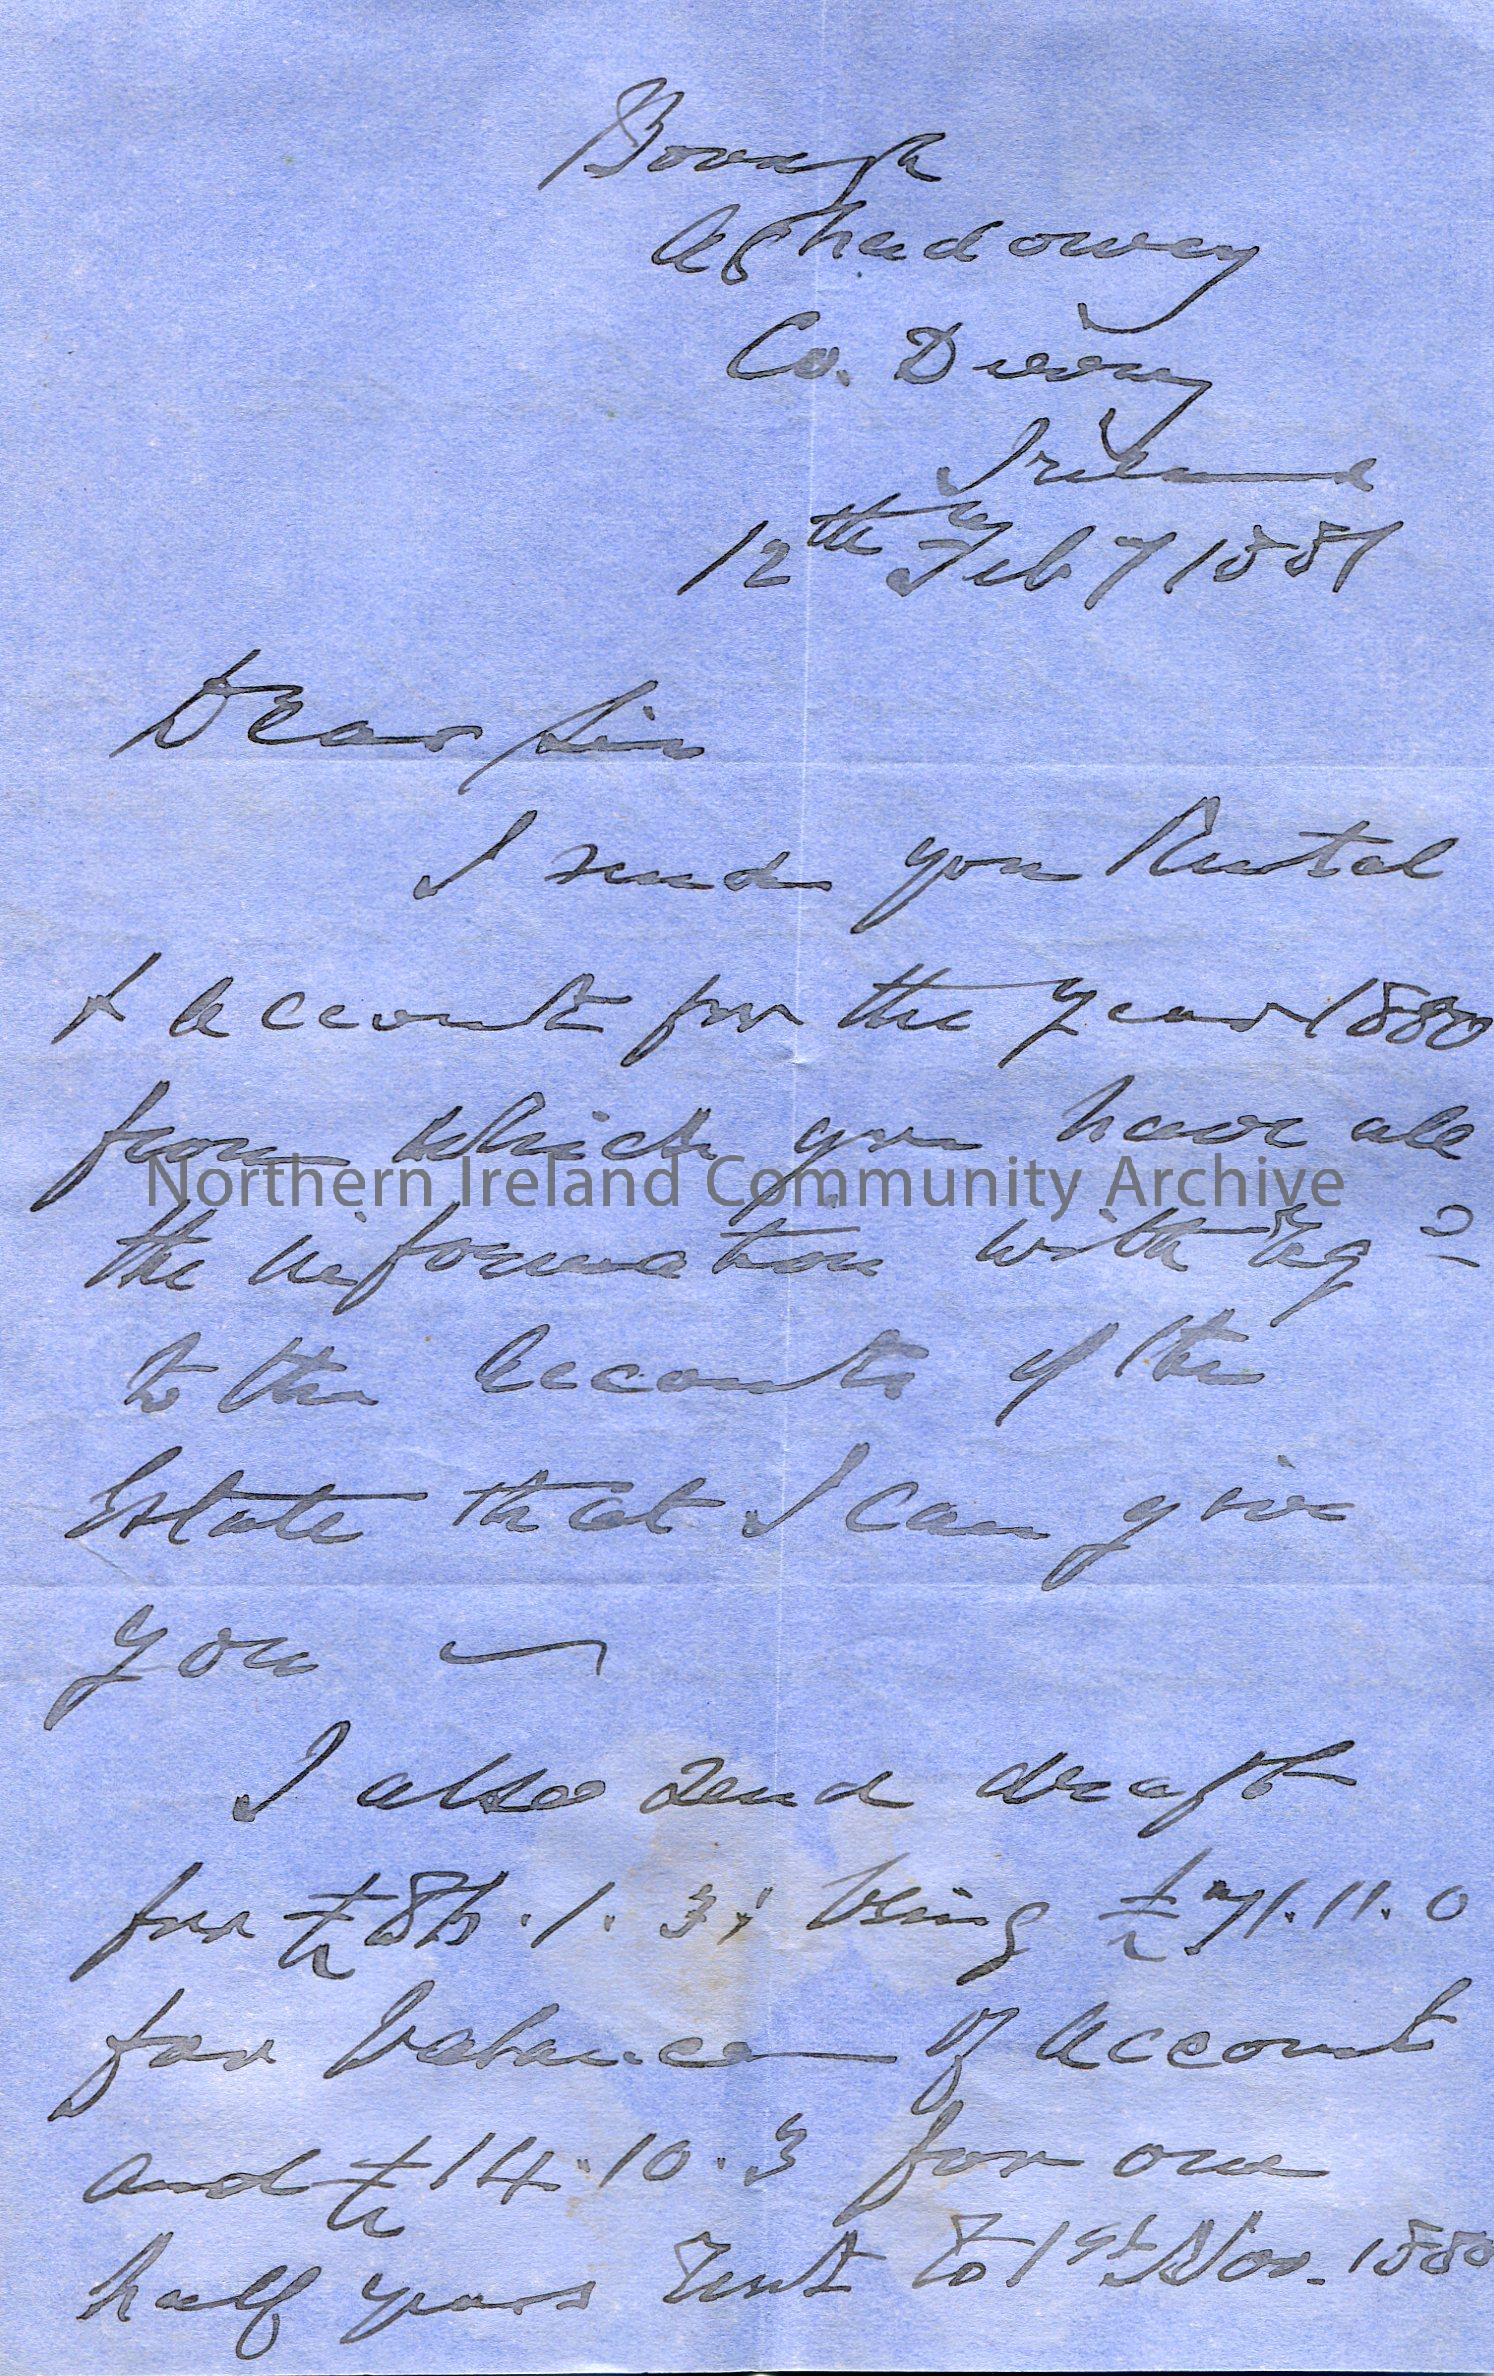 Bovagh
Aghadowey
Co. Derry
Ireland
12th Feby 1881
Dear Sir
I send you Rental
& Account for the Year 1880
from which you have all
Northern Ireland Community Archive
the information with regd
to the Accounts of the
Estate that I can give
you —
I also send draft
for £86.1.3; being £71.11.0
for balance of Account
and £14.10.3 for one
half years Rent to 1st Nov. 1880